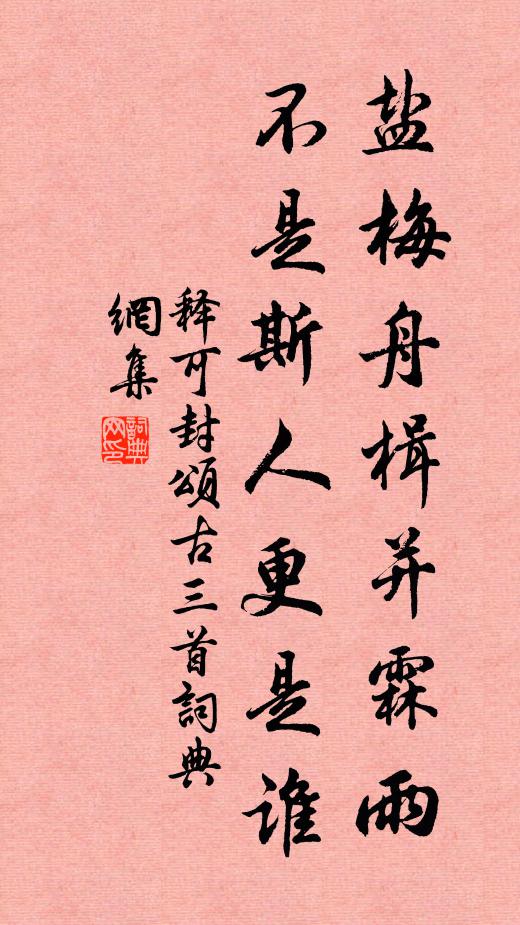 盐梅舟楫并霖雨
不是斯人更是谁
释可封颂古三首词典
網集
詞典网印